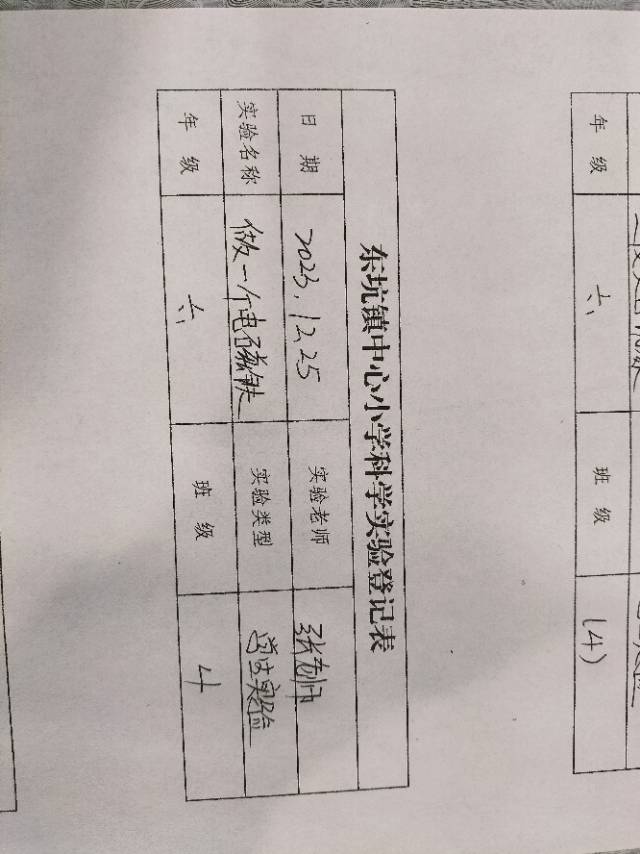 东坑镇中心小学科学实验登记表
日 期 2023.12.25 实验老师 张老师
实验名称 做一个电磁铁 实验类型 学生实验
年 级 六 班 级 4
年 级 六 班 级 (4)